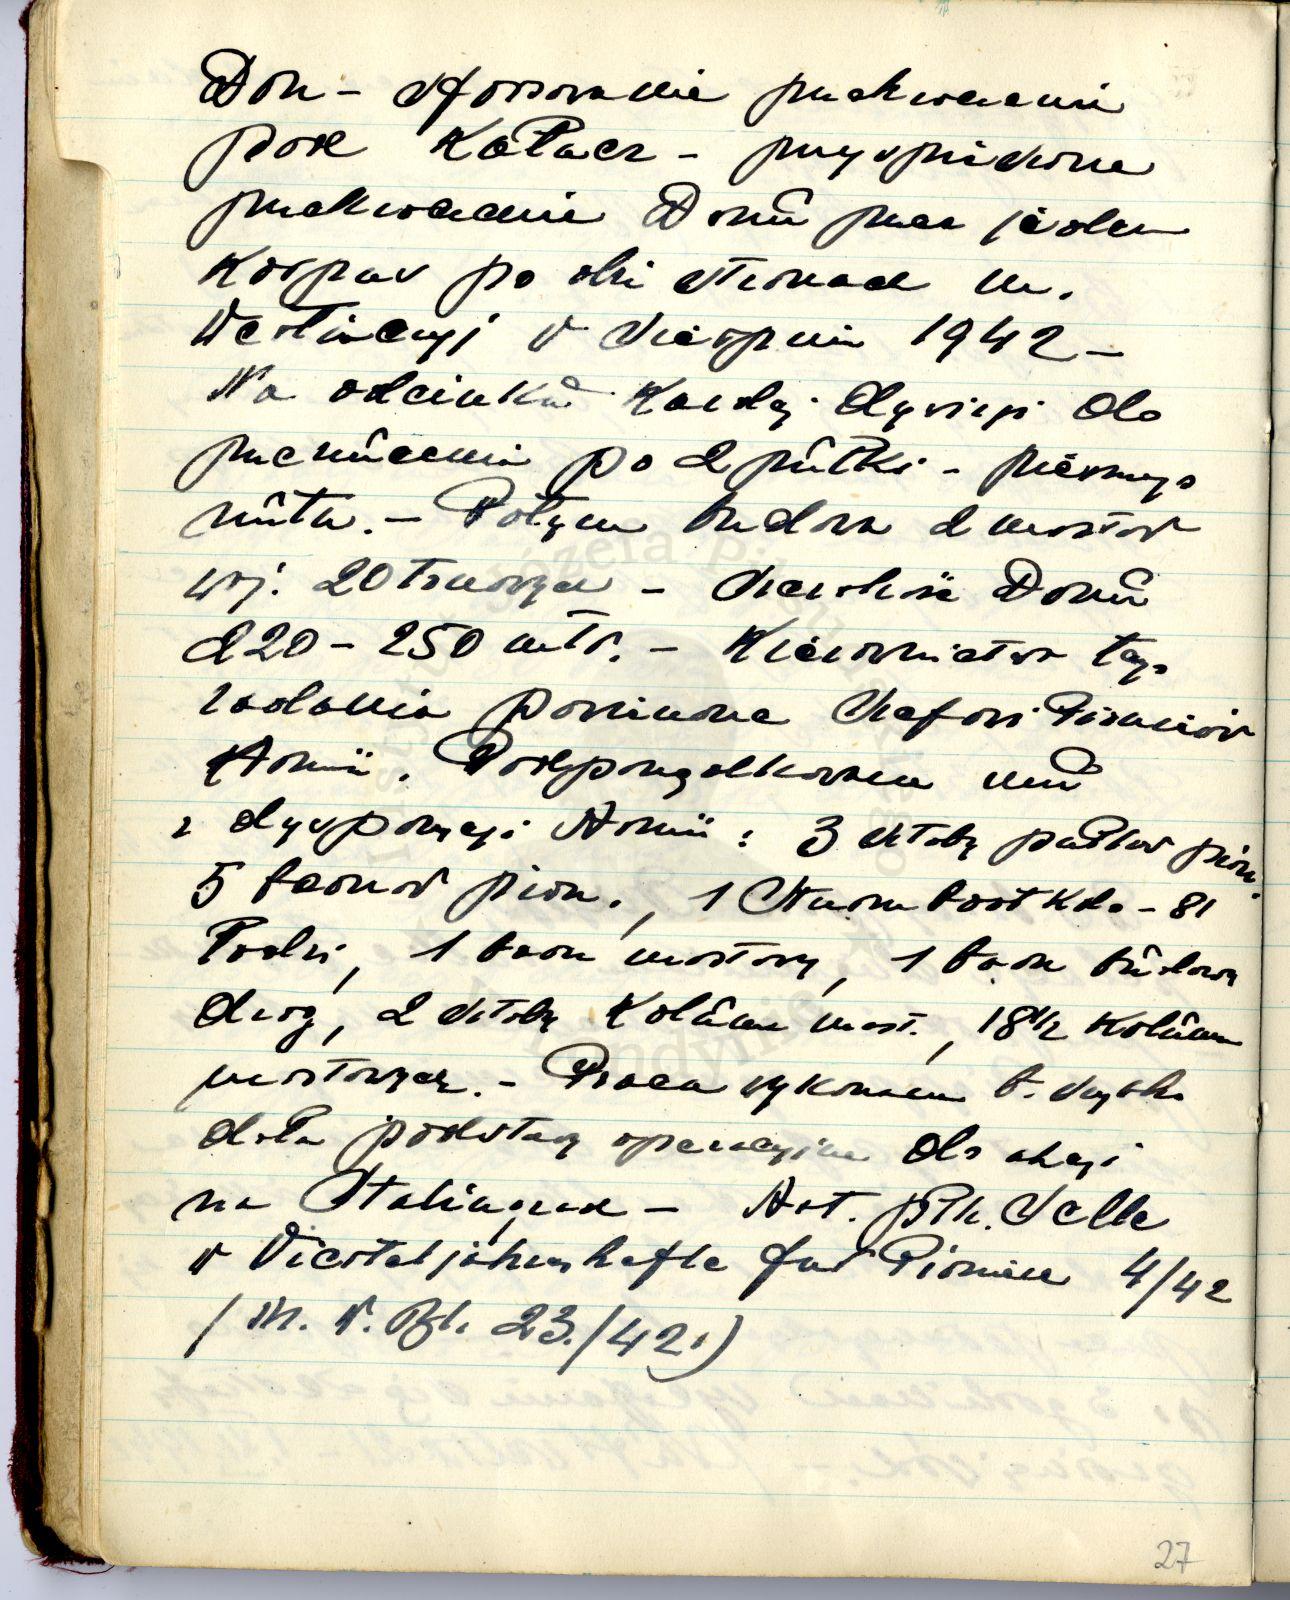 Don – sforsowanie przekroczenia
pod Kałacz – przyspieszone
przekroczenie Donu przez jeden
Korpus po obu stronach m.
w sierpniu 1942 –
Na odcinku każdej dywizji do
przerzucenia po 2 pułki – pierwszego
rzutu. – Potym budowa 2 mostów
wj. 20 tonowych – szerokość Donu
220 – 250 mtr. – Kierownictwo tego
zadania powierzone szefowi Pionierów
Armii. Podporządkowano mu
z dyspozycji Armii: 3 sztaby pułków pion.
5 baonów pion., 1 Sturmbootkdo – 81
łodzi, 1 baon mostowy, 1 baon budowy
dróg, 2 sztaby Kolumn most., 18 1/2 Kolumn
mostowych. – Praca wykonana b. szybko
dała podstawy operacyjne do akcji
na Stalingrad – Art. płk. Selle
w Vierteljahreshefte für Pioniere 4/42
(M. W. Bl. 23./42.)
27